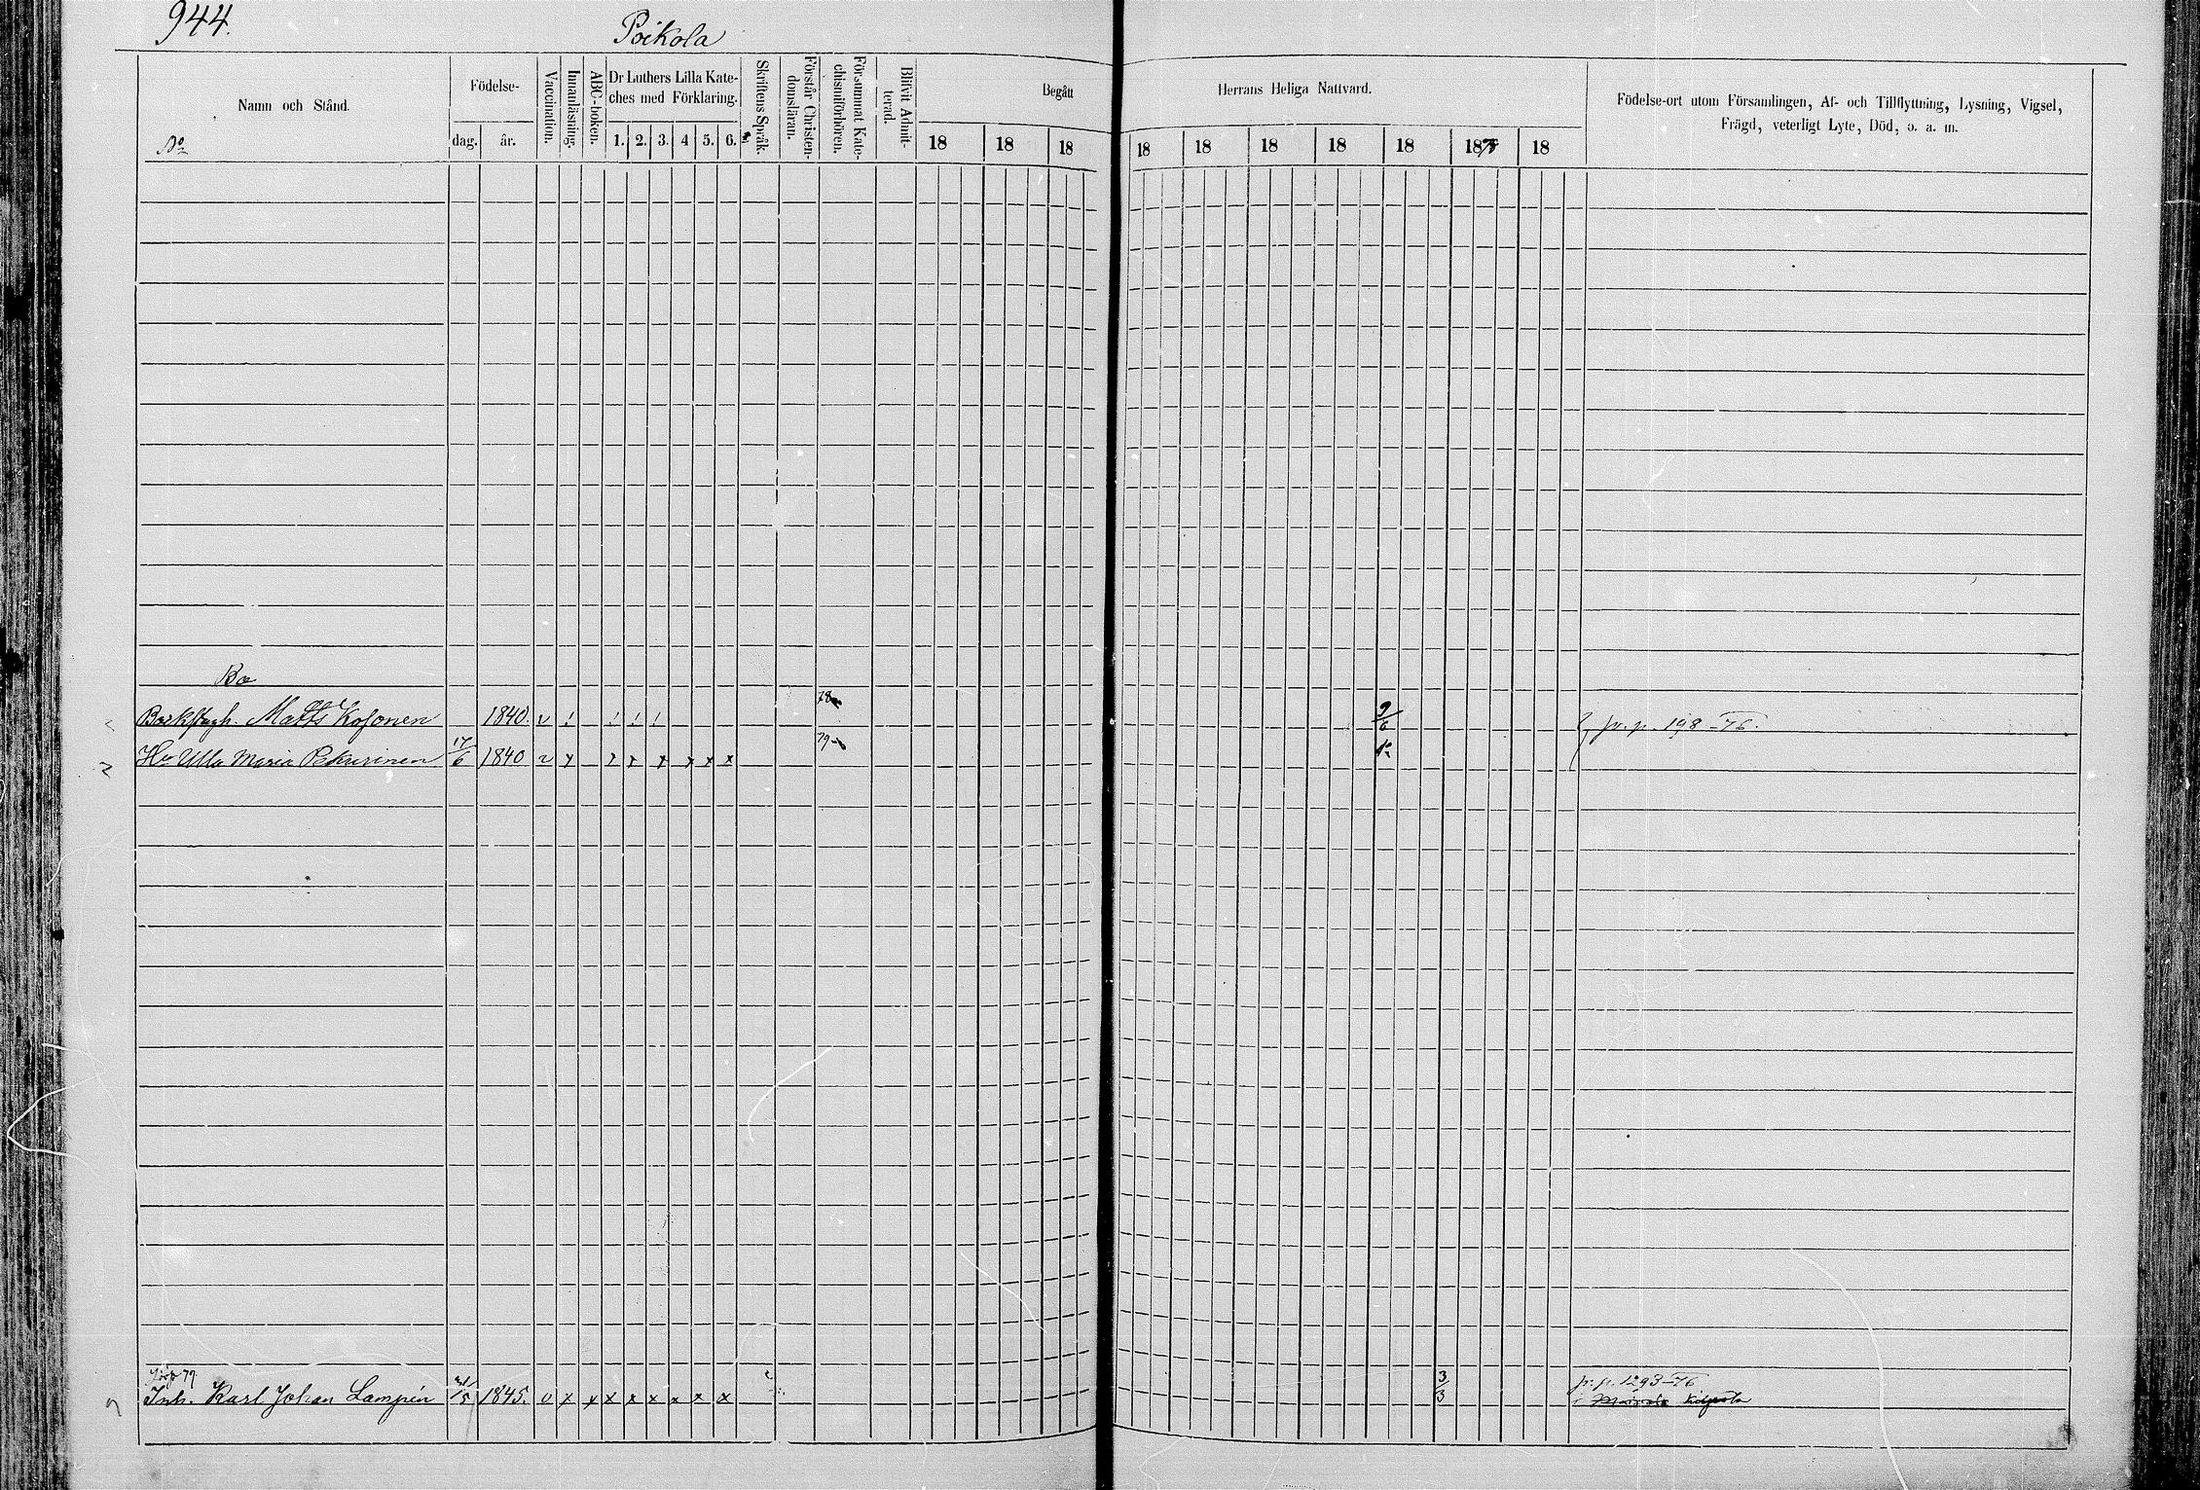 944.
Poikola
Namn och Stånd.
No
Födelse-
dag. år.
Vaccination.
Innanläsning.
ABC-boken.
Dr Luthers Lilla Kate-
ches med Förklaring.
1. 2. 3. 4 5. 6.
Skriftens Språk.
Förstår Christen-
domsläran.
Försummat Kate-
chismiförhören.
Blifvit Admit-
terad.
Begått Herrans Heliga Nattvard.
18 18 18 18 18 18 18 18 18 18
Födelse-ort utom Församlingen, Af- och Tillflyttning, Lysning, Vigsel,
Frägd, veterligt Lyte, Död, o. a. m.
78
Matts Kosonen 1840. v 9/6 fr. p. 198 -76.
79
Hu Ulla Maria Pekurinen 17/6 1840 v x x x x x x x
79
Inh. Karl Johan Lampén /5 1845. v x x x x x x x x 3/3 fr. p. 1293-76